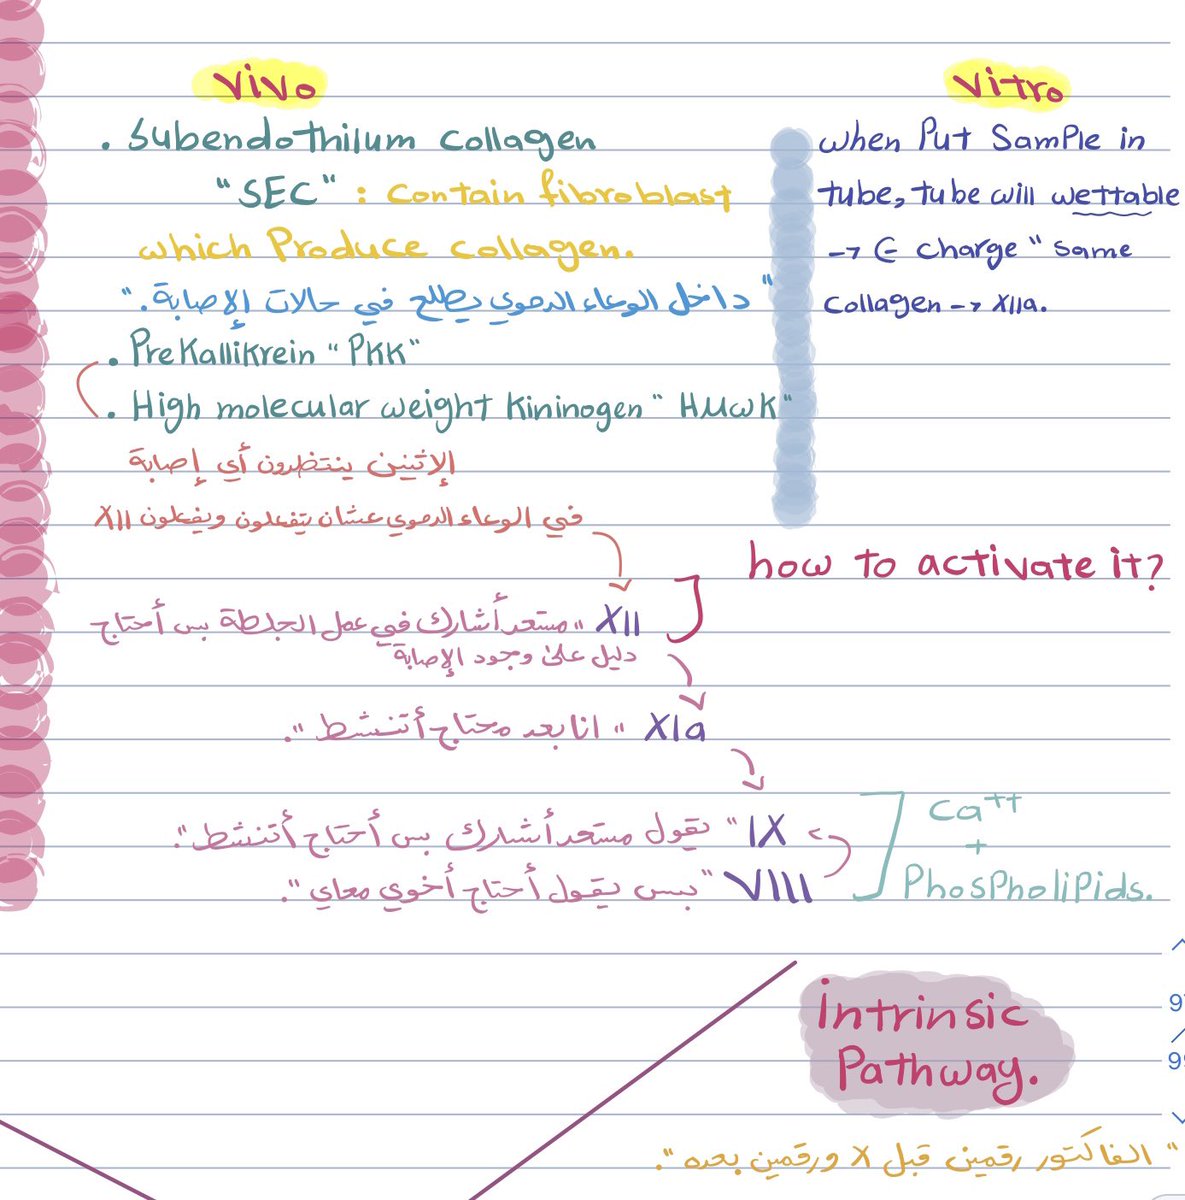 Vivo
. Subendothilum collagen
"SEC" : contain fibroblast
which Produce collagen.
"داخل الوعاء الدموي يطلع في حالات الإصابة."
. PreKallikrein "PKK"
. High molecular weight Kininogen "HMWK"
الإثنين ينتظرون أي إصابة
في الوعاء الدموي عشان يتفعلون ويفعلون XII
Vitro
when Put Sample in
tube, tube will wettable
→ ⊖ charge " same
collagen → XIIa.
how to activate it?
XII "مستعد أشارك في عمل الجلطة بس أحتاج
دليل على وجود الإصابة
XIa "انا بعد محتاج أتنشط".
IX "يقول مستعد أشارك بس أحتاج أتنشط".
VIII "بس يقول أحتاج أخوي معاي".
Ca++
+
Phospholipids.
intrinsic
Pathway.
"الفاكتور رقمين قبل X ورقمين بعده".